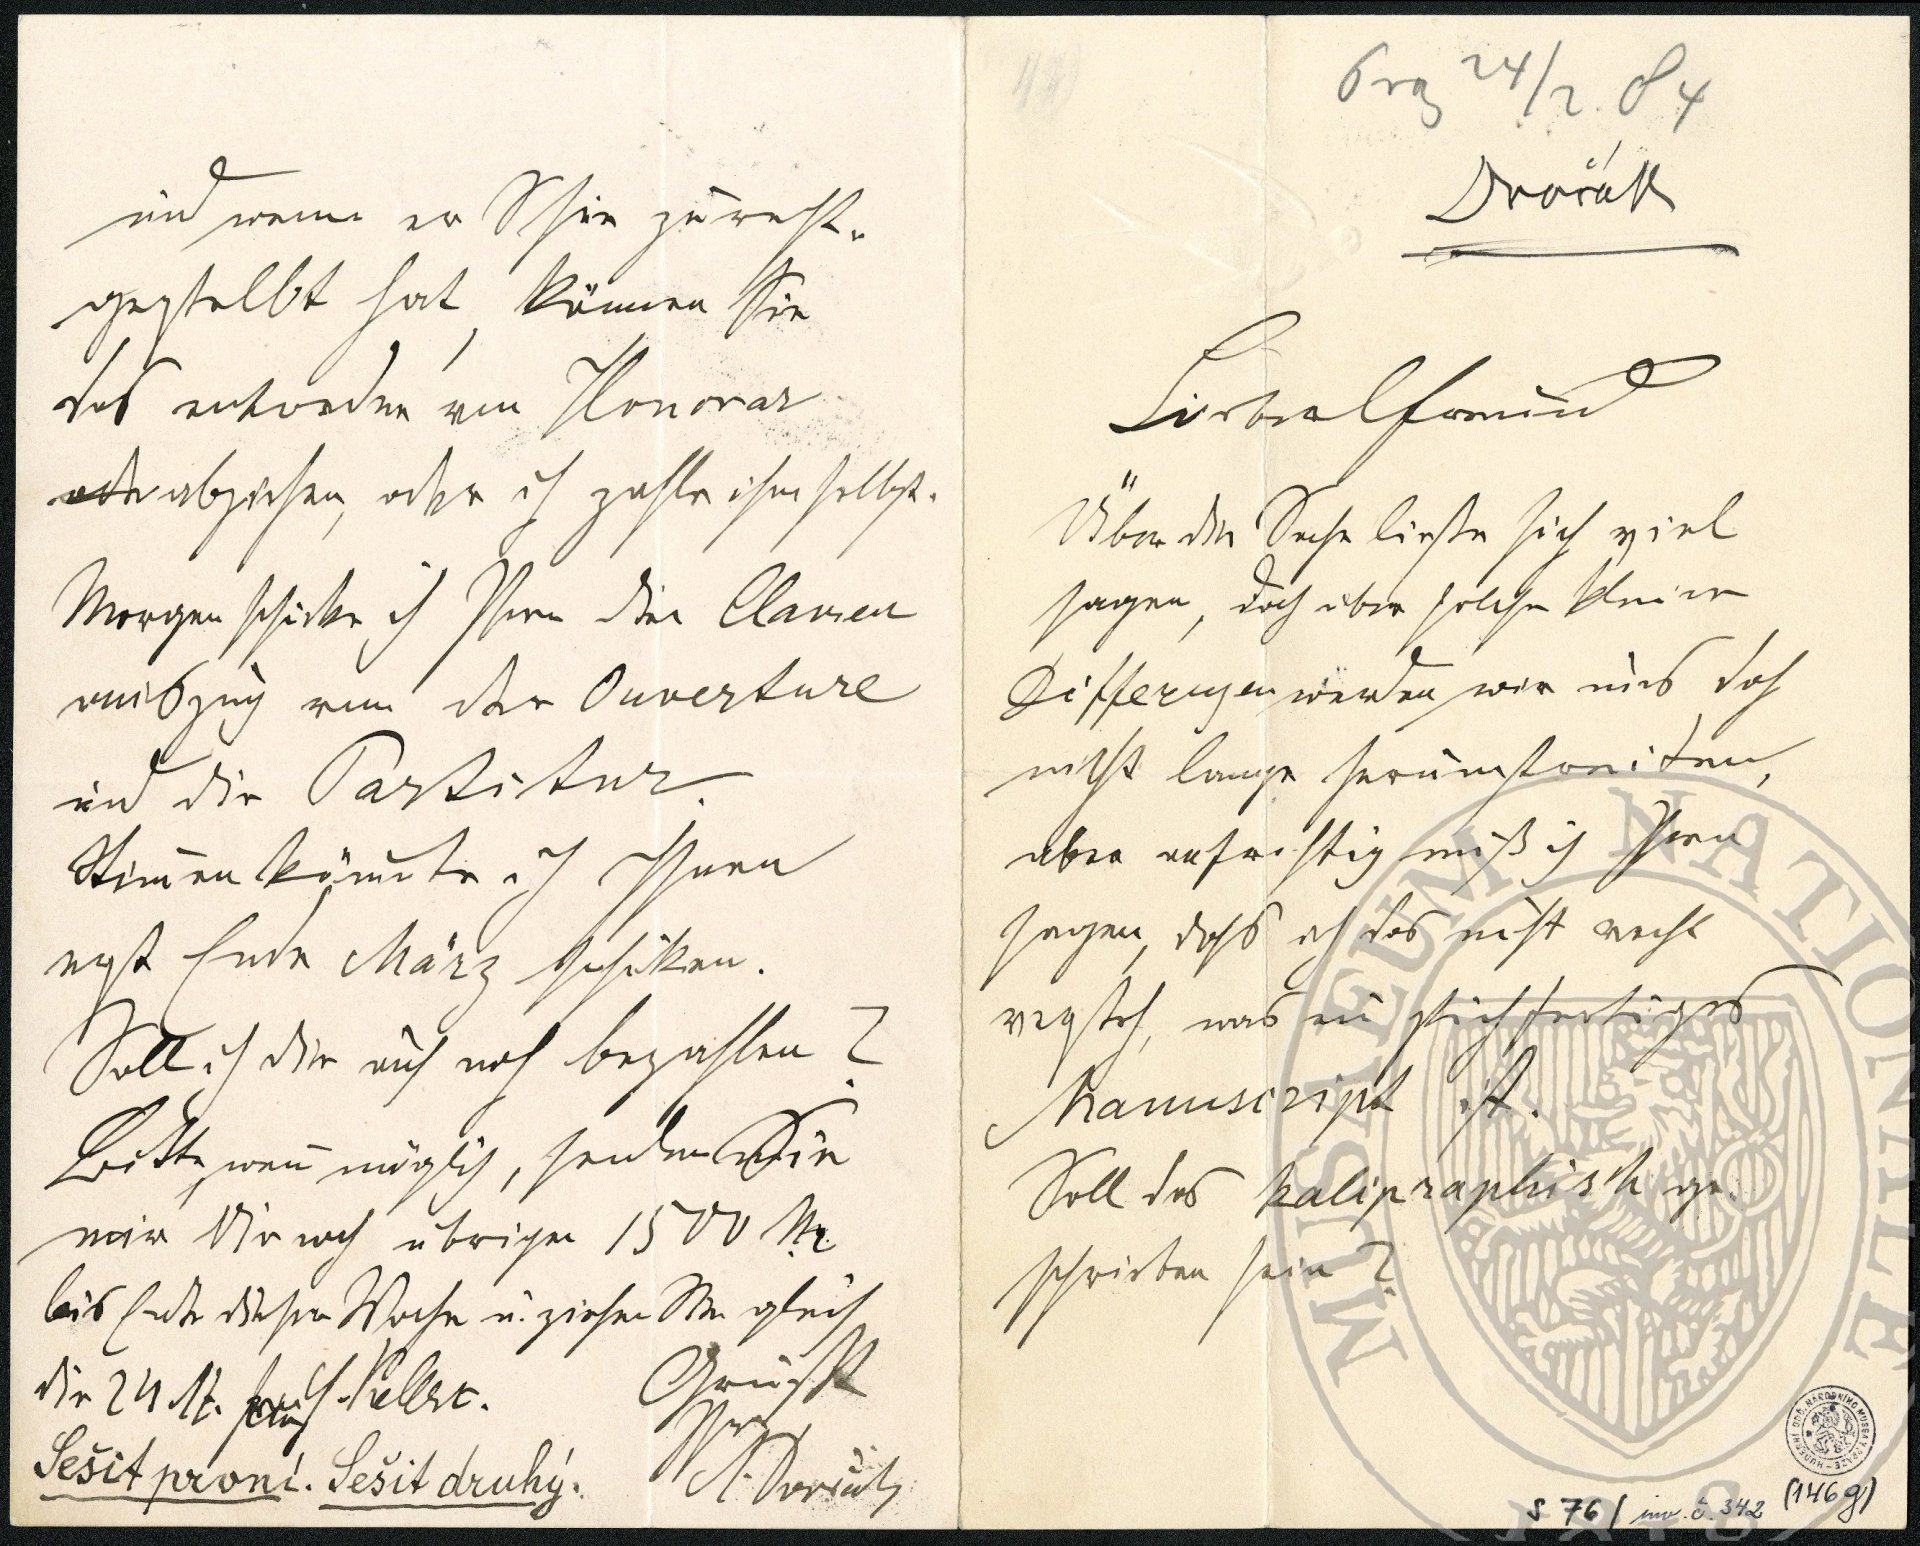 Prag 24/2. 84
Dvořák
Liebster Freund
Über die Sache ließe sich viel
sagen, doch über solche kleine
Differenzen werden wir uns doch
nicht lange herumstreiten,
aber aufrichtig muß ich Ihnen
sagen, dass ich das nicht recht
versteh, was ein stichfertiges
Manuscript ist.
Soll das kaligraphisch ge-
schrieben sein?
und wenn er Ihnen zurecht-
gestellt hat, können Sie
das entweder vom Honorar
oder abziehen, oder ich zahle ihm selbst.
Morgen schicke ich Ihnen den Clavier
auszug von der Ouverture
und die Partitur.
Stimmen könnte ich Ihnen
erst Ende März schicken.
Soll ich die auch noch bezahlen?
Bitte, wenn möglich, senden Sie
mir die noch übrigen 1500 M.
bis Ende dieser Woche u. ziehen Sie gleich
die 24 M. für Keller.
Grüsst
Ihr
A. Dvořák
Sešit první. Sešit druhý.
MUSEUM NATIONALE
1818
S 76 / inv. č. 342 (146g)